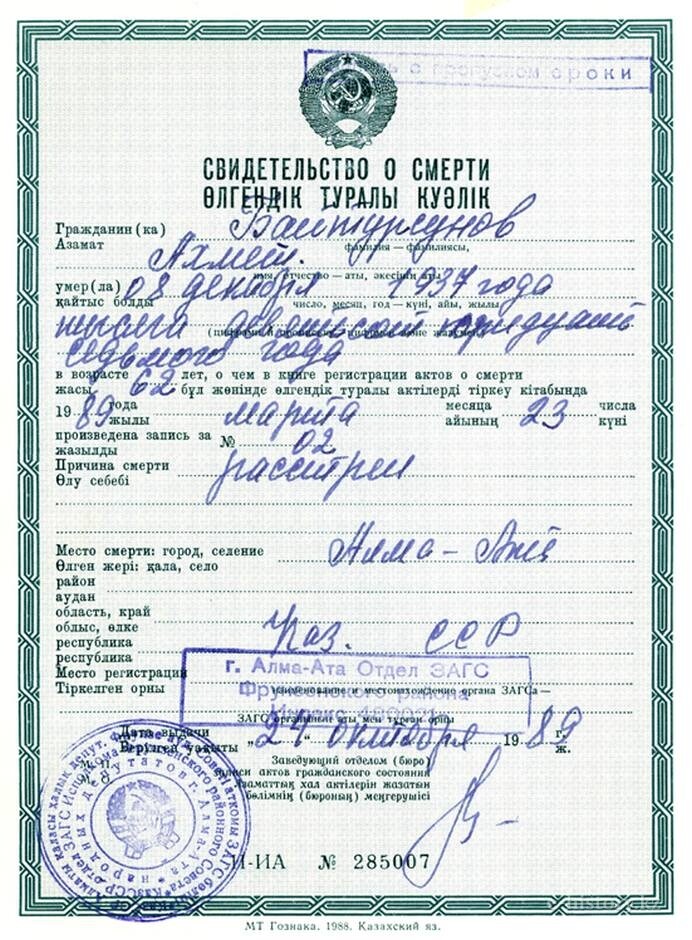 с пропуском сроки
СВИДЕТЕЛЬСТВО О СМЕРТИ
ӨЛГЕНДІК ТУРАЛЫ КУӘЛІК
Гражданин (ка) Байтурсунов
Азамат фамилия — фамилиясы,
Ахмет.
имя, отчество — аты, әкесінің аты
умер(ла) 08 декабря 1937 года
қайтыс болды число, месяц, год — күні, айы, жылы
тысяча девятьсот тридцать
(цифрами и прописью)
седьмого года
в возрасте 62 лет, о чем в книге регистрации актов о смерти
жасы бұл жөнінде өлгендік туралы актілерді тіркеу кітабында
19 89 года марта месяца 23 числа
жылы айының күні
произведена запись за № 02
жазылды
Причина смерти расстрел
Өлу себебі
Место смерти: город, селение Алма-Ата
Өлген жері: қала, село
район
аудан
область, край
облыс, өлке
республика Каз. ССР
республика
Место регистрации
г. Алма-Ата Отдел ЗАГС
Тіркелген орны наименование и местонахождение органа ЗАГСа —
Фрунзенского района
Индекс
ЗАГС органының аты мен тұрған орны
Дата выдачи „24“ октября 19 89 г.
Берілген уақыты ж.
Заведующий отделом (бюро)
записи актов гражданского состояния
Азаматтық хал актілерін жазатын
бөлімнің (бюроның) меңгерушісі
II-ИА № 285007
МТ Гознака. 1988. Казахский яз.